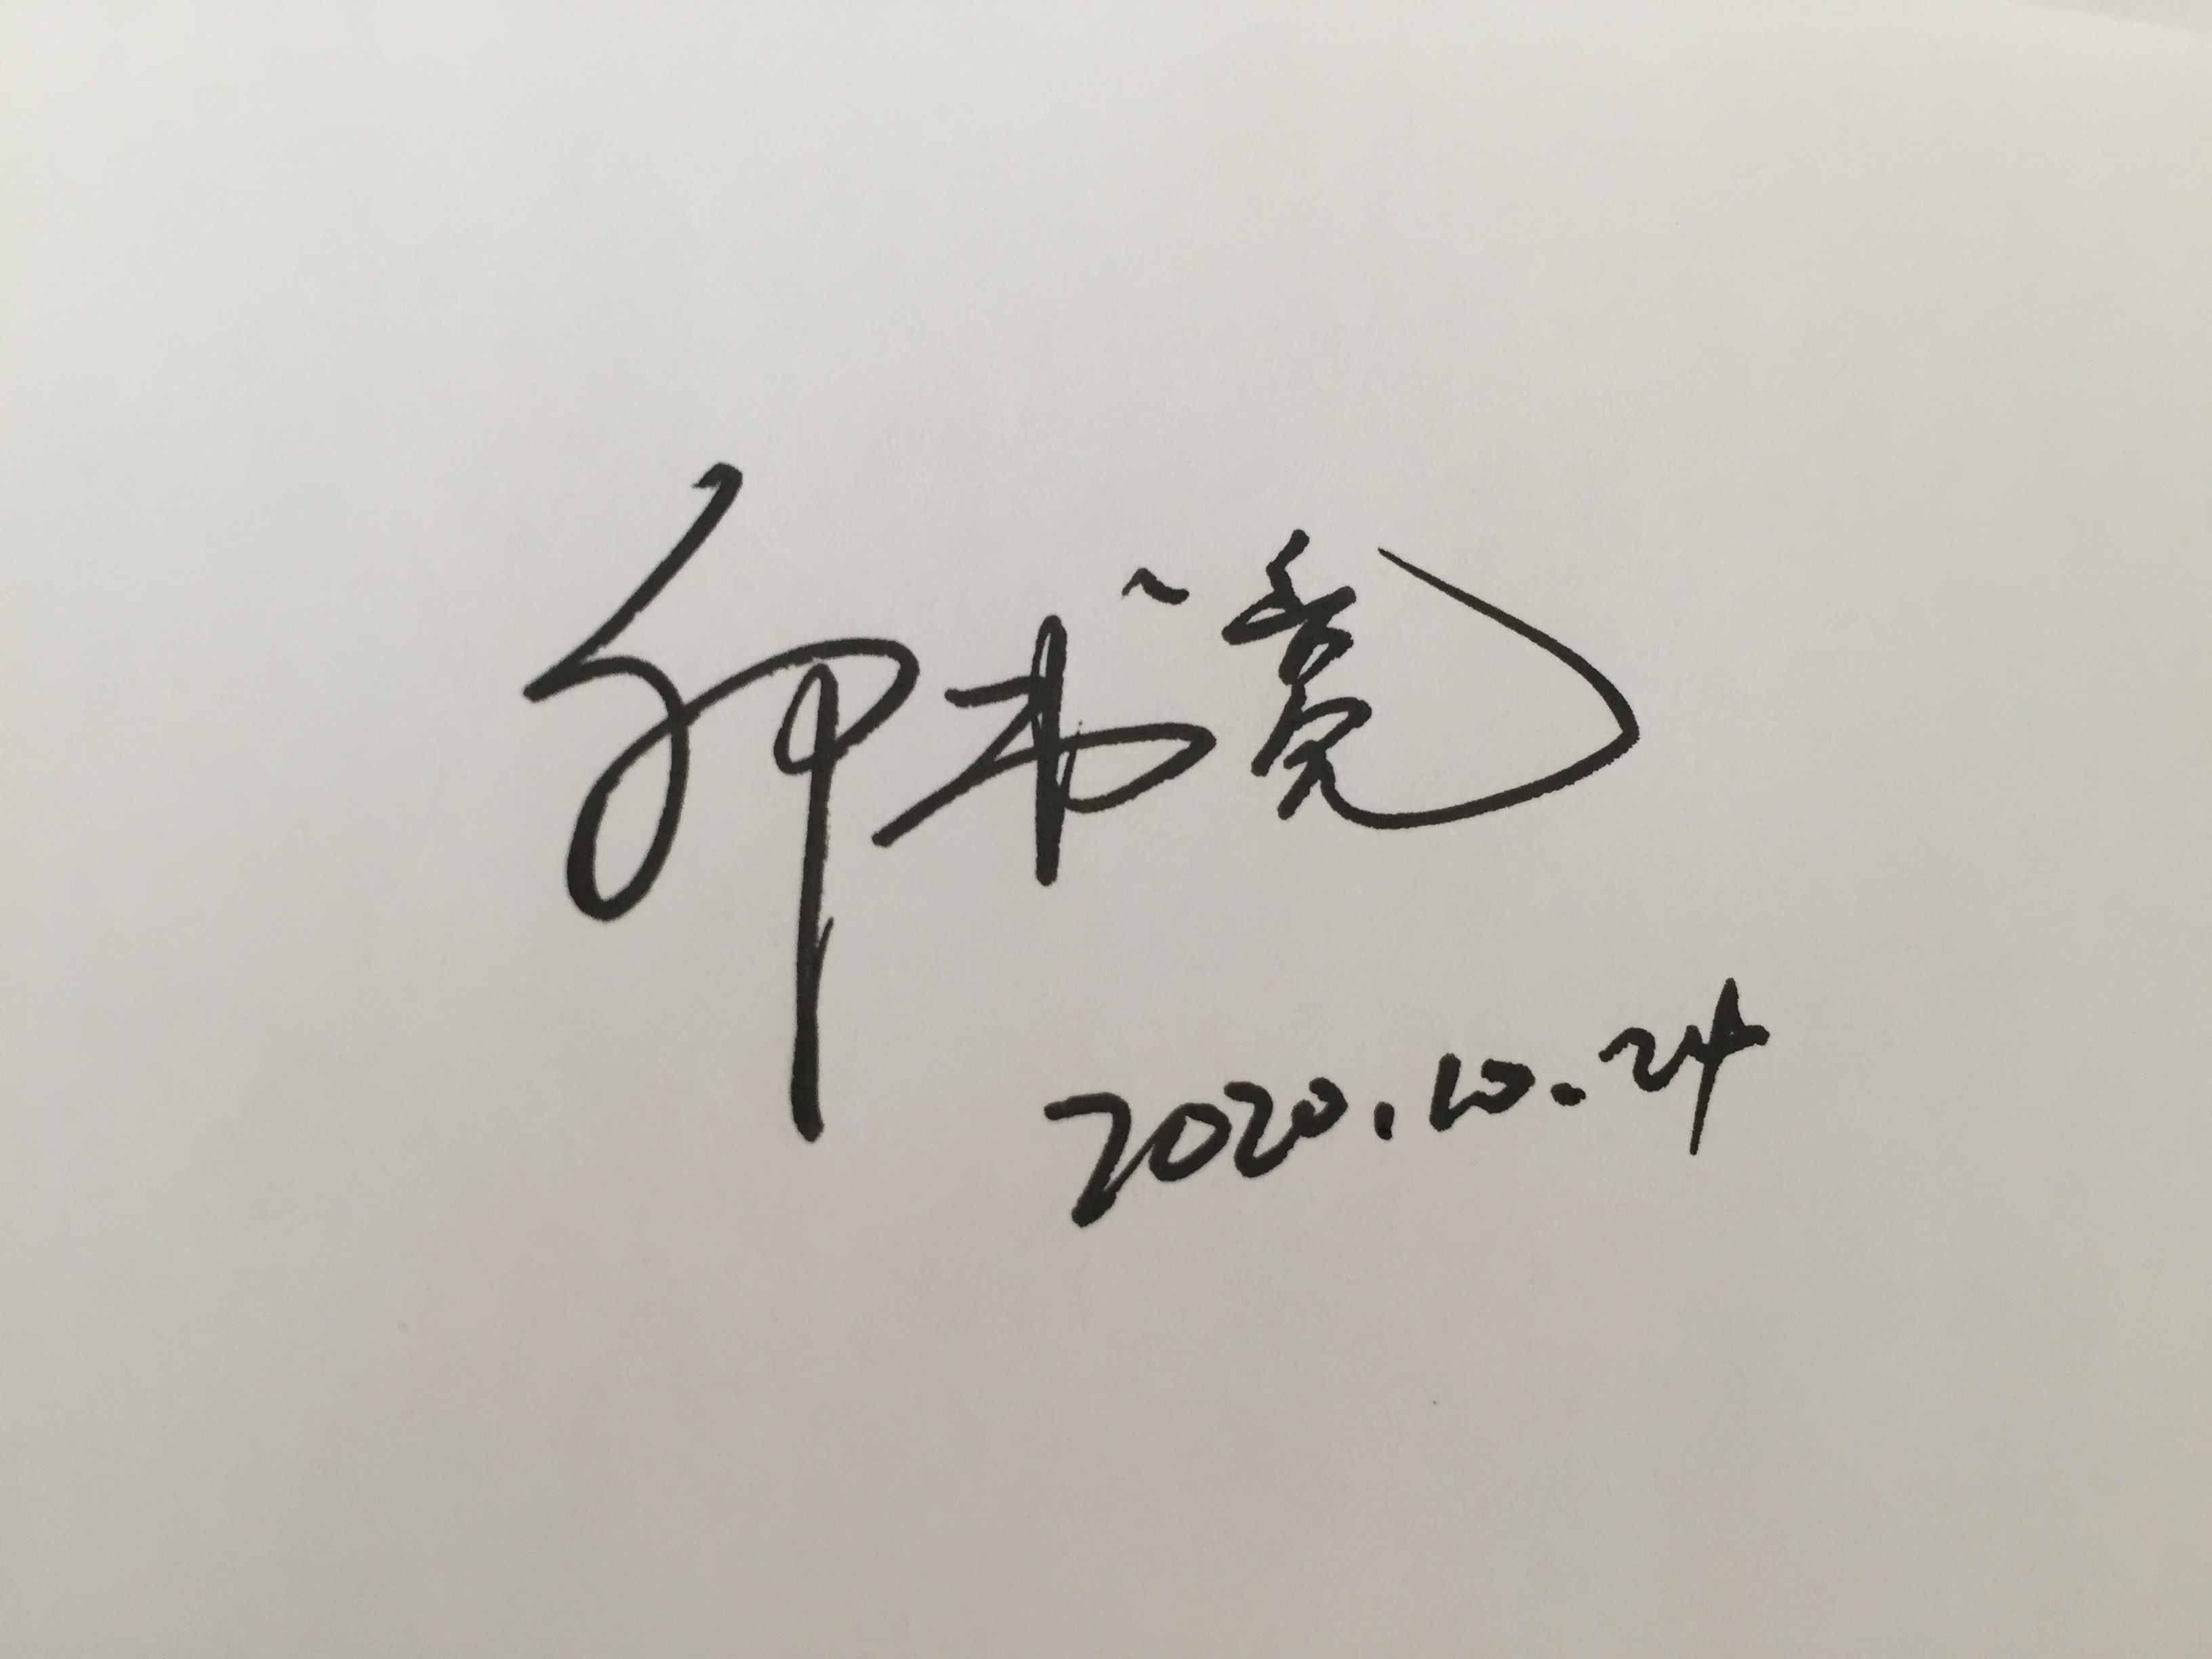 书竞
2020.10.24